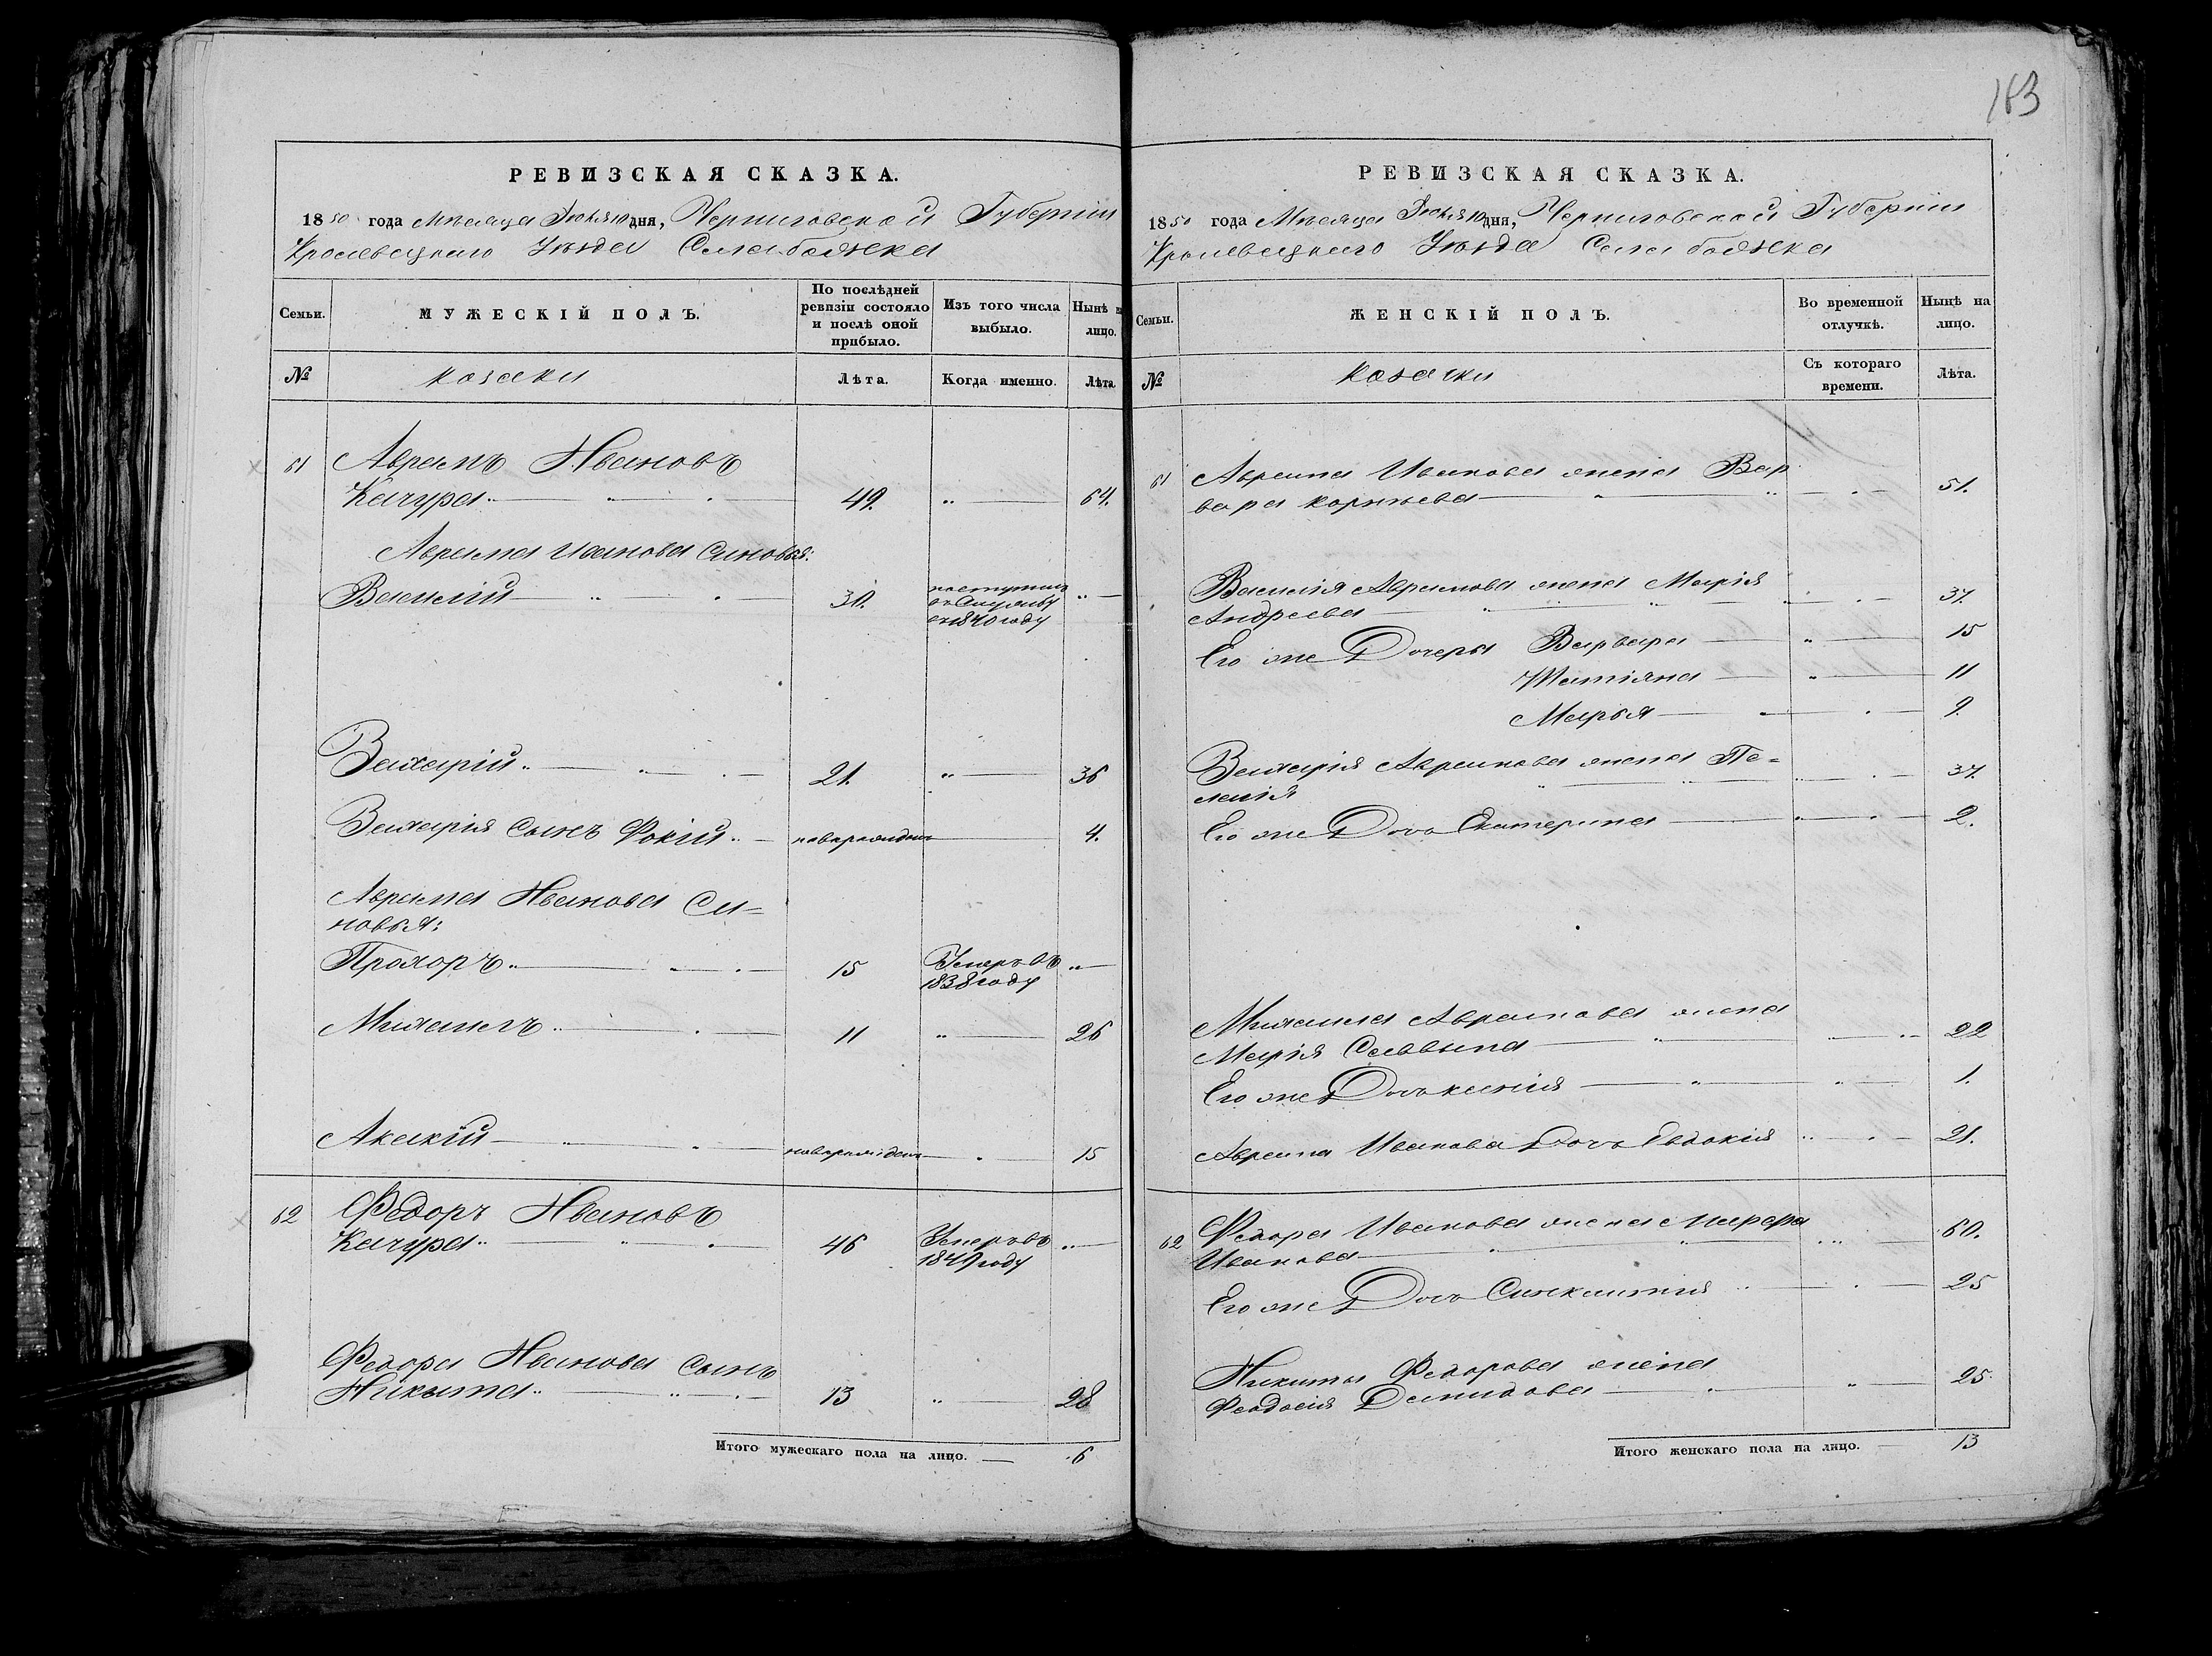 183
РЕВИЗСКАЯ СКАЗКА.
1850 года Мѣсяца Іюля 10 дня, Черниговской Губерніи
Кролевецкаго Уѣзда Села
Семьи.
МУЖЕСКІЙ ПОЛЪ.
По послѣдней ревизіи состояло и послѣ оной прибыло.
Изъ того числа выбыло.
Нынѣ на лицо.
№
козаки
Лѣта.
Когда именно.
Лѣта.
61 Аврамъ Ивановъ
Качура 49. 64.
Аврама Иванова Синовья:
Василій 30. поступилъ
въ Службу
въ 1840 году
Захарій 21. 36
Захарія Сынъ Фокій новорожденъ 4.
Аврама Иванова Си=
новья:
Прохоръ 15 Умеръ въ
1838 году
Михаилъ 11 26
Акакій новорожденъ 15
62 Федоръ Ивановъ
Качура 46 Умеръ въ
1849 году
Федора Иванова Сынъ
Никита 13 28
Итого мужескаго пола на лицо. 6
РЕВИЗСКАЯ СКАЗКА.
1850 года Мѣсяца Іюля 10 дня, Черниговской Губерніи
Кролевецкаго Уѣзда Села
Семьи.
ЖЕНСКІЙ ПОЛЪ.
Во временной отлучкѣ.
Нынѣ на лицо.
№
козачки
Съ котораго времени.
Лѣта.
61 Аврама Иванова жена Вар
вара Корнѣева 51.
Василія Аврамова жена Марія
Андреева 37.
Его же Дочери Варвара 15
Татіяна 11
Марья 9.
Захарія Аврамова жена Пе=
лагія 37.
Его же Дочь Екатерина 2.
Михаила Аврамова жена
Марія Саввина 22
Его же Дочь Ксенія 1.
Аврама Иванова Дочь Евдокія 21.
62 Федора Иванова жена Марфа
Иванова 60.
Его же Дочь Синклитія 25
Никиты Федорова жена
Феодосія Демидова 25.
Итого женскаго пола на лицо. 13